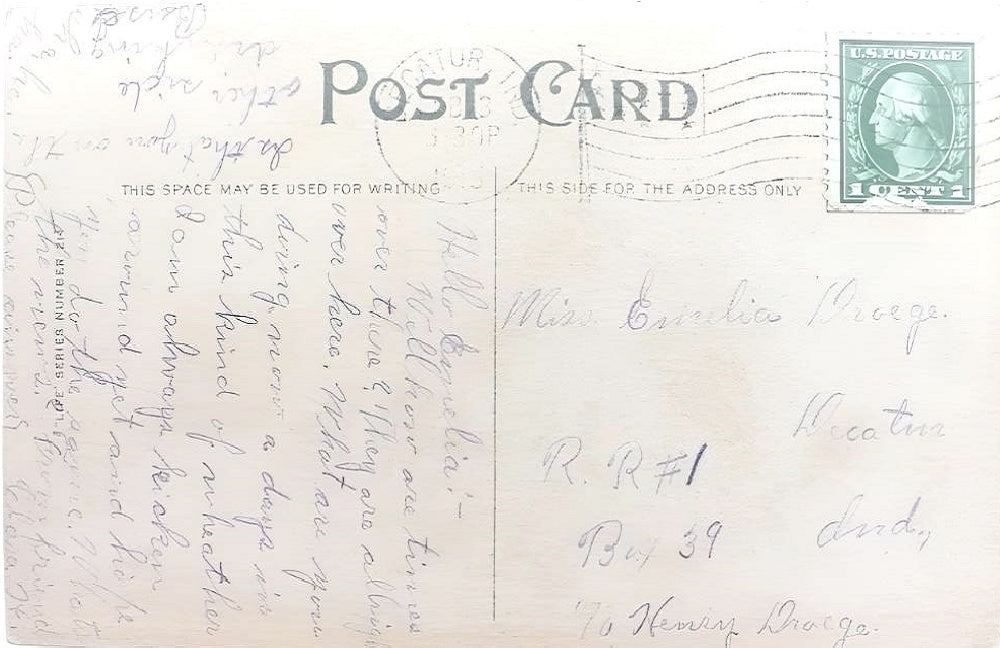 POST CARD
THIS SPACE MAY BE USED FOR WRITING
THIS SIDE FOR THE ADDRESS ONLY
U.S. POSTAGE
1 CENT 1
CATUR
30P
Hello Emelia:-
Well how are times
over there? They are allright
over here. What are you
doing now a days in
this kind of wheather
I am always kicken
around yet and hope
you do the same. Whats
the news?
your friend
Please answer
SERIES NUMBER
Is that you on the
other side
drinking
Miss. Emelia Droege.
Decatur
R. R #1
Ind,
Box 39
% Henry Droege.